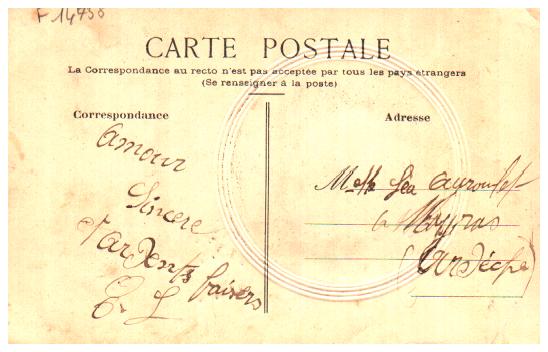 F 14738
CARTE POSTALE
La Correspondance au recto n'est pas acceptée par tous les pays étrangers
(Se renseigner à la poste)
Correspondance
Adresse
Amour
Sincere
et ardents baisers
E. L
Melle Léa
à Mayras
(Ardèche)